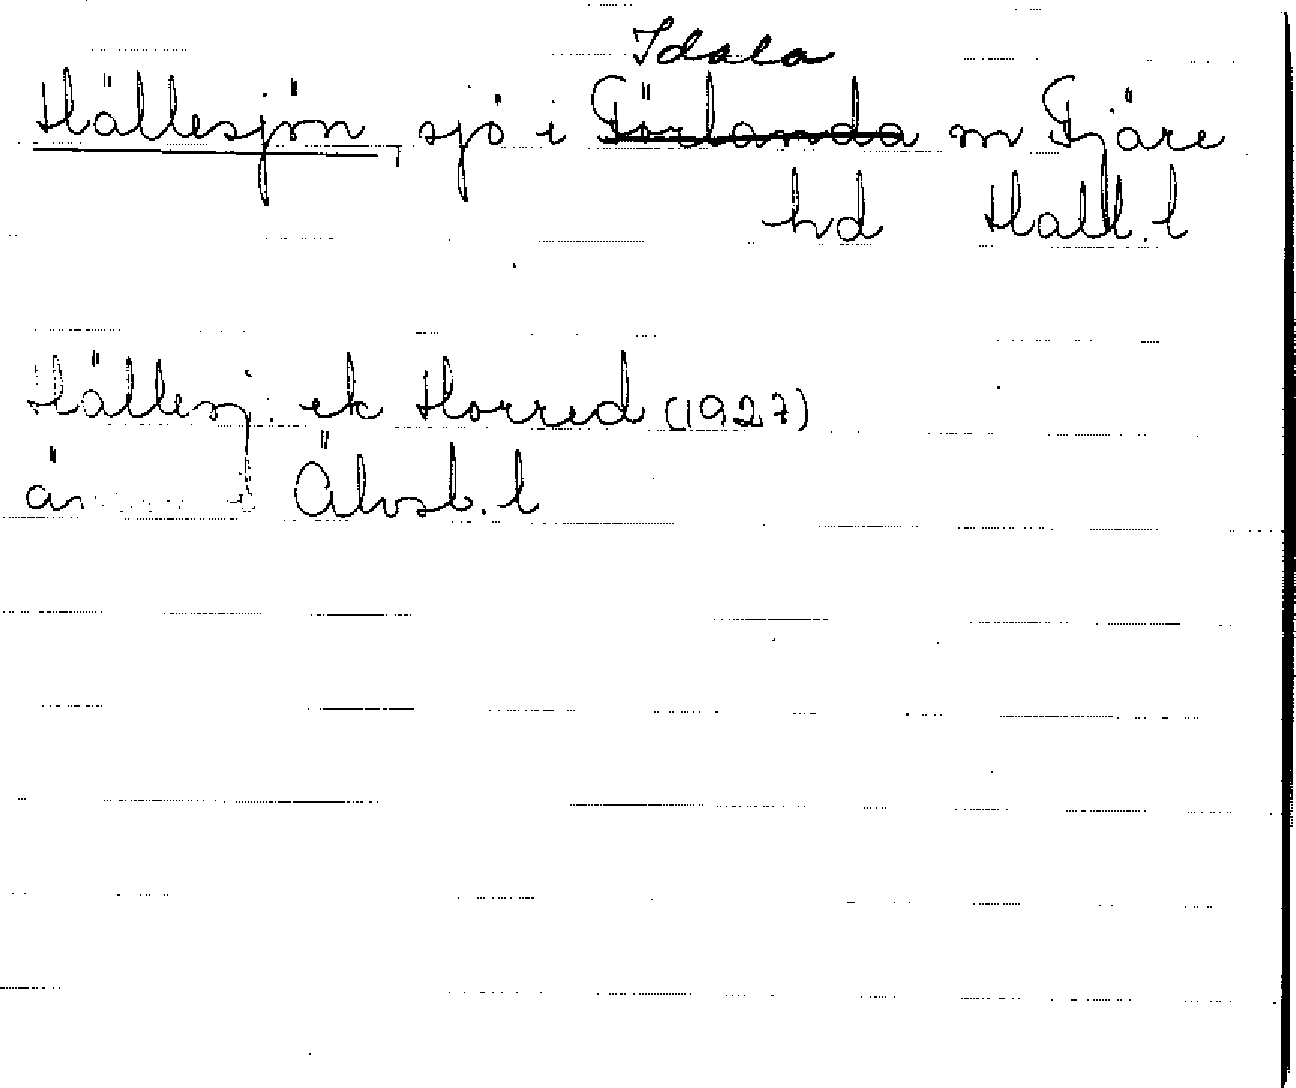 Idala
Hällesjön, sjö i Förlanda sn Fjäre
hd Hall. l
Hällesj. ek Horred (1927)
Älvsb. l